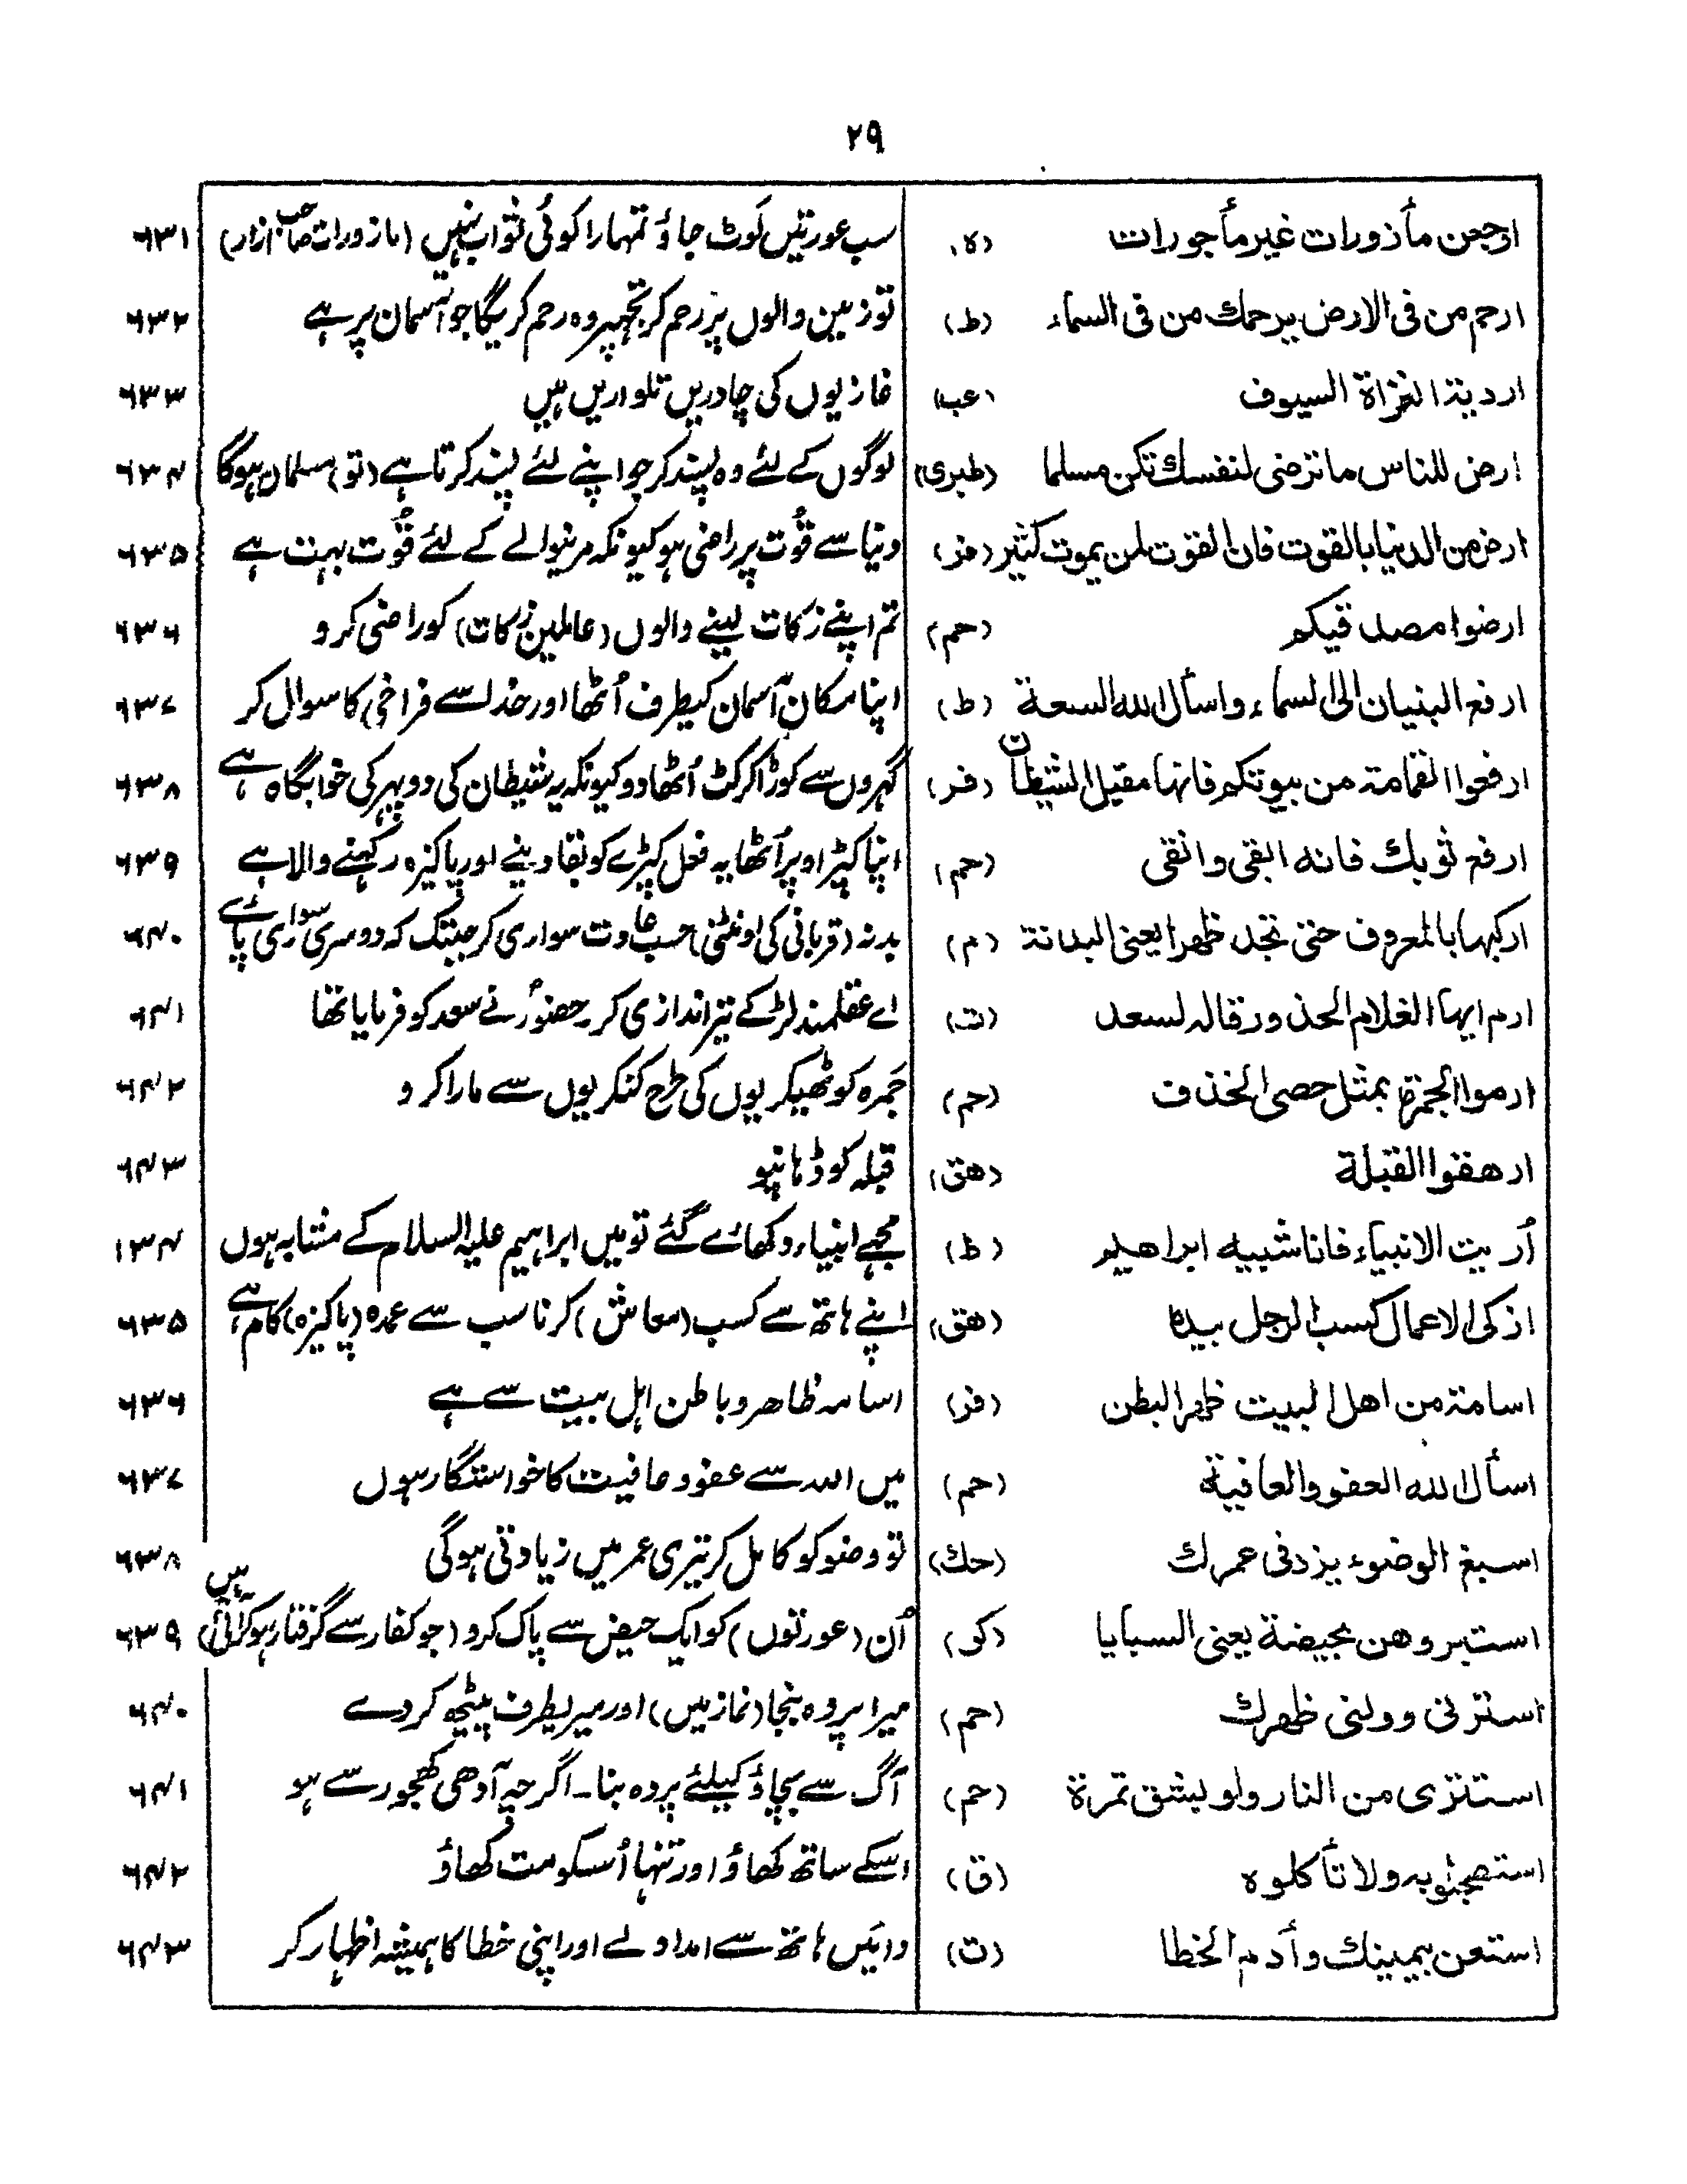 ۲۹
ارجعن مأزورات غیر مأجورات (ہ) سب عورتیں لَوٹ جاؤ تمہارا کوئی ثواب نہیں (مازورات صاحب ازار) ۶۳۱
ارحم من فی الارض یرحمك من فی السماء (ط) تو زمین والوں پر رحم کر تجہپر وہ رحم کریگا جو آسمان پر ہے ۶۳۲
اردیة الغزاة السیوف (عب) غازیوں کی چادریں تلواریں ہیں ۶۳۳
ارض للناس ماترضی لنفسك تکن مسلما (طبری) لوگوں کے لئے وہ پسند کر جو اپنے لئے پسند کرتا ہے (تو) مسلمان ہوگا ۶۳۴
ارض من الدنیا بالقوت فان القوت لمن یموت کثیر (فر) دنیا سے قُوت پر راضی ہو کیونکہ مرنیوالے کے لئے قُوت بہت ہے ۶۳۵
ارضوا مصدقیکم (حم) تم اپنے زکات لینے والوں (عاملین زکات) کو راضی کرو ۶۳۶
ارفع البنیان الی السماء واسأل الله السعة (ط) اپنا مکان آسمان کیطرف اُٹھا اور خدا سے فراخی کا سوال کر ۶۳۷
ارفعوا القمامة من بیوتکم فانها مقیل الشیطان (فر) گہروں سے کوڑا کرکٹ اُٹھا دو کیونکہ یہ شیطان کی دوپہر کی خوابگاہ ہے ۶۳۸
ارفع ثوبك فانه ابقی وانقی (حم) اپنا کپڑا اوپر اُٹھا یہ فعل کپڑے کو بقا دینے اور پاکیزہ رکہنے والا ہے ۶۳۹
ارکبها بالمعروف حتی تجد ظهرا یعنی البدنة (م) بدنہ (قربانی کی اونٹنی) حسب عادت سواری کر جبتک کہ دوسری سواری پائے ۶۴۰
ارم ایها الغلام الحذور قاله لسعد (ت) اے عقلمند لڑکے تیر اندازی کر۔ حضورؐ نے سعد کو فرمایا تھا ۶۴۱
ارموا الجمرة بمثل حصی الخذف (حم) جَمرہ کو ٹھیکریوں کی طرح کنکریوں سے مارا کرو ۶۴۲
ارهقوا القبلة (هق) قبلہ کو ڈہانپو ۶۴۳
أریت الانبیاء فانا شبیه ابراهیم (ط) مجہے انبیاء دکھائے گئے تو میں ابراہیم علیہ السلام کے مشابہ ہوں ۱۳۴
ازکی الاعمال کسب الرجل بیده (هق) اپنے ہاتھ سے کسب (معاش) کرنا سب سے عمدہ (پاکیزہ) کام ہے ۶۳۵
اسامة من اهل البیت ظهر البطن (فر) اسامہ ظاہر و باطن اہل بیت سے ہے ۶۳۶
اسأل الله العفو والعافیة (حم) میں اللہ سے عفو و عافیت کا خواستگار ہوں ۶۳۷
اسبغ الوضوء یزد فی عمرك (حك) تو وضو کو کامل کر تیری عمر میں زیادتی ہوگی ۶۳۸
استبروهن بحیضة یعنی السبایا (کر) اُن (عورتوں) کو ایک حیض سے پاک کرو (جو کفار سے گرفتار ہو کر آئی ہیں) ۶۳۹
استرنی وولنی ظهرك (حم) میرا پردہ بنجا (نماز میں) اور میریطرف پیٹھ کر دے ۶۴۰
استتری من النار ولو بشق تمرة (حم) آگ سے بچاؤ کیلئے پردہ بنا۔ اگرچہ آدھی کھجور سے ہو ۶۴۱
به ولا تأکلوه (ق) اسکے ساتھ کھاؤ اور تنہا اُسکو مت کھاؤ ۶۴۲
استعن بیمینك وأدم الخطا (ت) دائیں ہاتھ سے امداد لے اور اپنی خطا کا ہمیشہ اظہار کر ۶۴۳